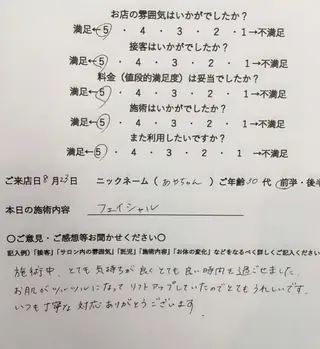 お店の雰囲気はいかがでしたか？
満足←5 ・ 4 ・ 3 ・ 2 ・ 1→不満足
接客はいかがでしたか？
満足←5 ・ 4 ・ 3 ・ 2 ・ 1→不満足
料金（値段的満足度）は妥当でしたか？
満足←5 ・ 4 ・ 3 ・ 2 ・ 1→不満足
施術はいかがでしたか？
満足←5 ・ 4 ・ 3 ・ 2 ・ 1→不満足
また利用したいですか？
満足←5 ・ 4 ・ 3 ・ 2 ・ 1→不満足
ご来店日8月23日 ニックネーム（あやちゃん）ご年齢30代（前半・後半
本日の施術内容 フェイシャル
〇ご意見・ご感想等お聞かせください〇
記入例）「接客」「サロン内の雰囲気」「託児」「施術内容」「お体の変化」などをなるべく詳しくご記入ください
施術中、とても気持ちが良くとても良い時間を過ごせました。
お肌がツルツルになってリフトアップしていたのでとてもうれしいです。
いつも丁寧な対応ありがとうございます